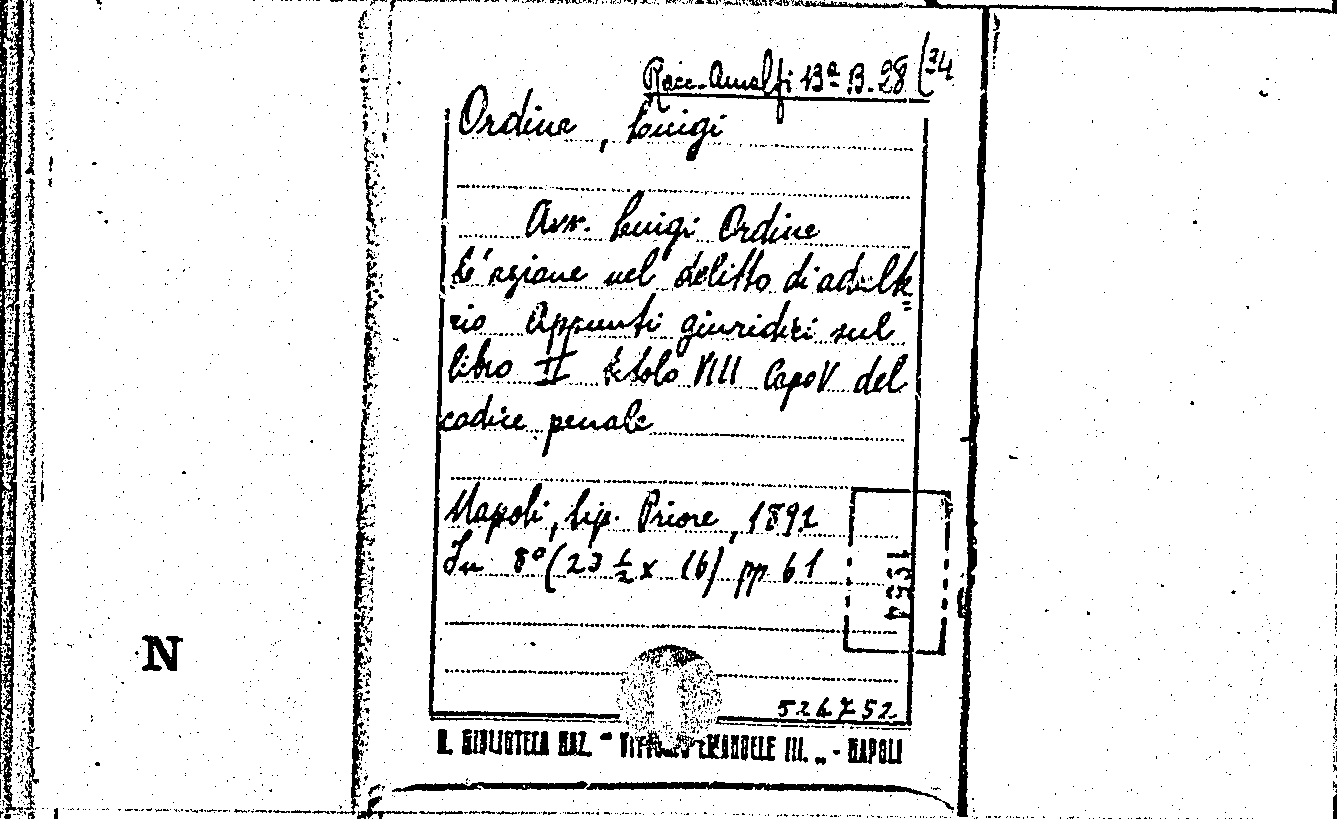 Racc. Amalfi 13ª B. 28 (34
Ordine, Luigi
Avv. Luigi Ordine
L'azione nel delitto di adulte=
rio Appunti giuridici sul
libro II titolo VIII Capo V del
codice penale
Napoli, tip. Priore, 1892
In 8° (23 ½ x 16) pp 61
1954
N
526752
R. BIBLIOTECA NAZ. "VITTORIO EMANUELE III. „ - NAPOLI